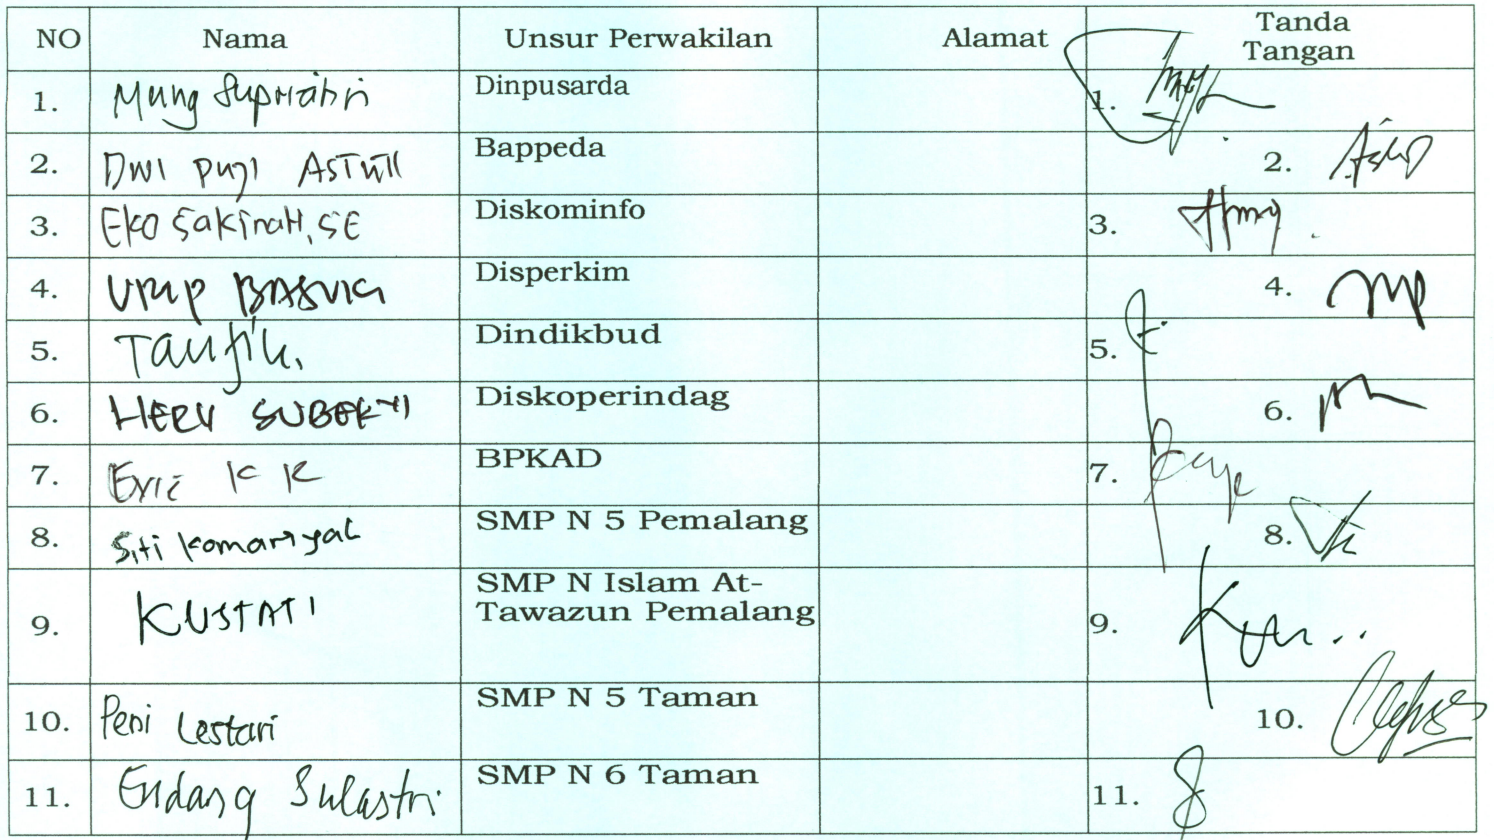 NO Nama Unsur Perwakilan Alamat Tanda
Tangan
1. Mung Supriatin Dinpusarda 1.
2. DWI PUJI ASTUTI Bappeda 2.
3. EKO SakinaH, SE Diskominfo 3.
4. URIP BASUKI Disperkim 4.
5. Taufik. Dindikbud 5.
6. HERU SUBEKTI Diskoperindag 6.
7. K K BPKAD 7.
8. Siti Komariyah SMP N 5 Pemalang 8.
9. KUSTATI SMP N Islam At-
Tawazun Pemalang 9.
10. Peni Lestari SMP N 5 Taman 10.
11. Endang Sulastri SMP N 6 Taman 11.